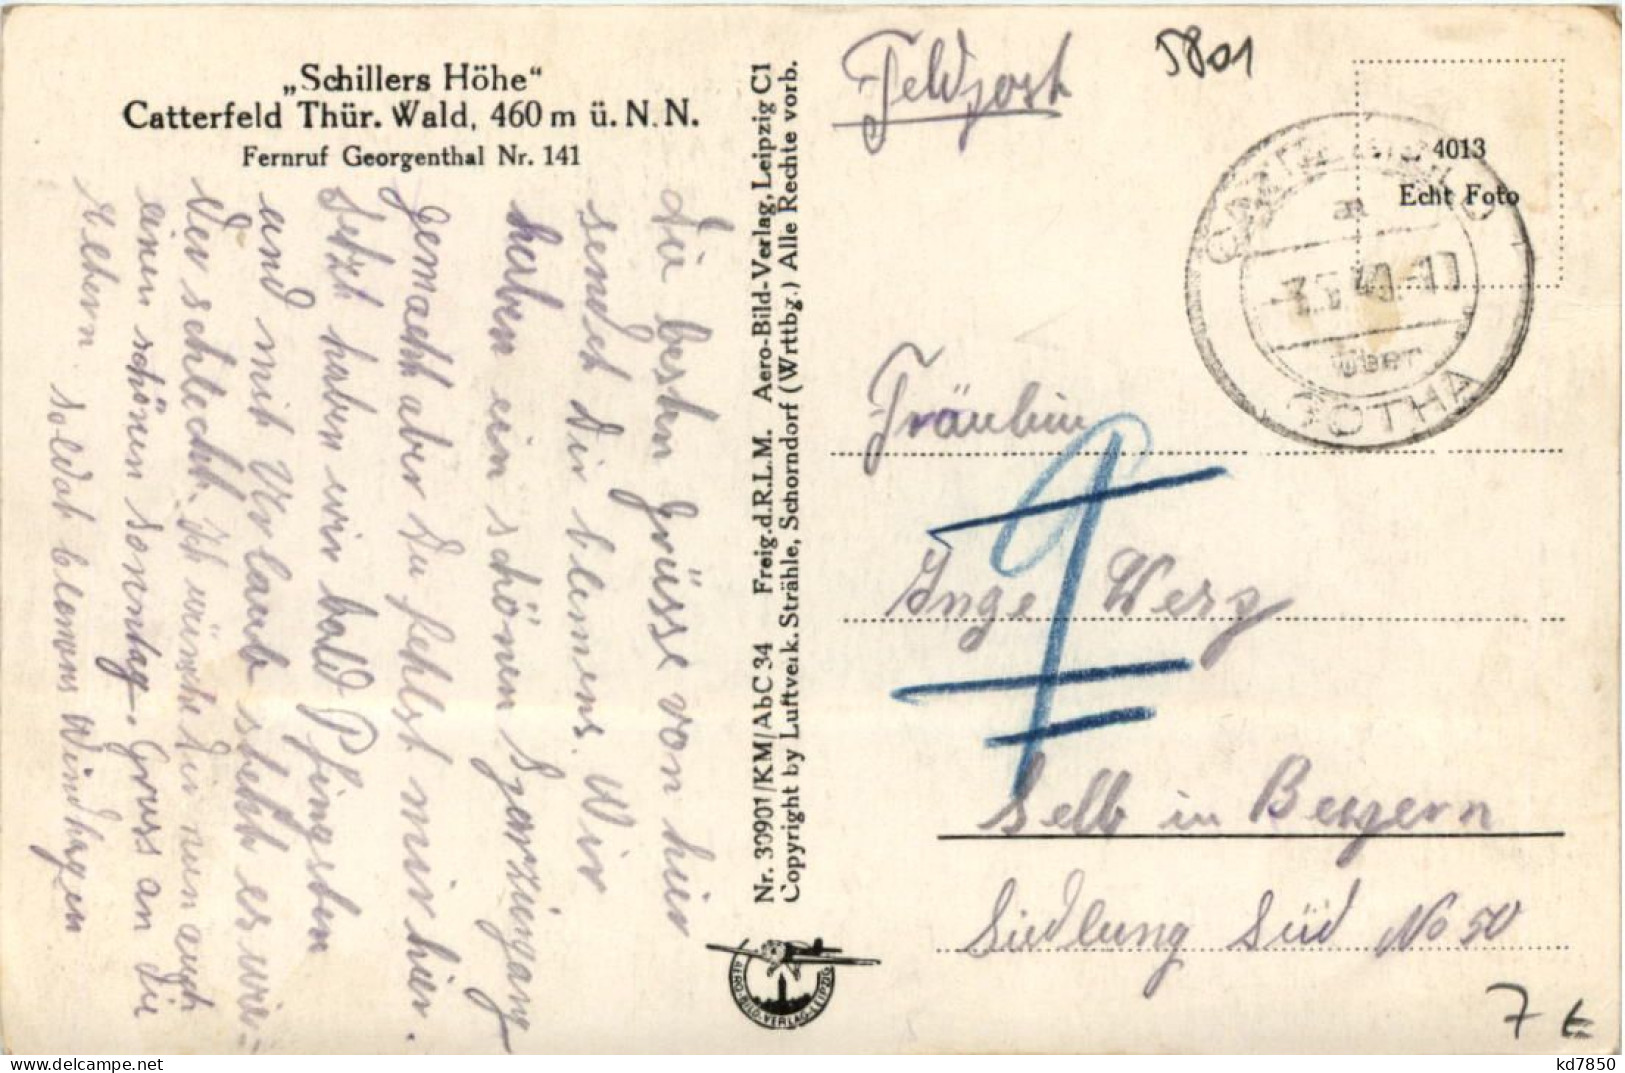 „Schillers Höhe“
Catterfeld Thür. Wald, 460 m ü. N. N.
Fernruf Georgenthal Nr. 141
Die besten Grüsse von hier
sendet dir Clemens. Wir
haben ein schönen Sparziergang
gemacht aber Du fehlst mir hier.
Jetzt haben wir bald Pfingsten
und mit Urlaub steht es wie-
der schlecht. Ich wünsche dir nun auch
einen schönen Sonntag. Gruss an die
Eltern. Soldat Clemens Windhagen
Nr. 30901/KM/AbC 34 Freig.d.R.L.M. Aero-Bild-Verlag, Leipzig C1
Copyright by Luftverk. Strähle, Schorndorf (Wrttbg.) Alle Rechte vorb.
AERO-BILD-VERLAG-LEIPZIG
Feldpost
5801
4013
Echt Foto
über
GOTHA
Fräulein
9
Inge Werz
Selb in Bayern
Siedlung Süd No 50
7 €
kd7850